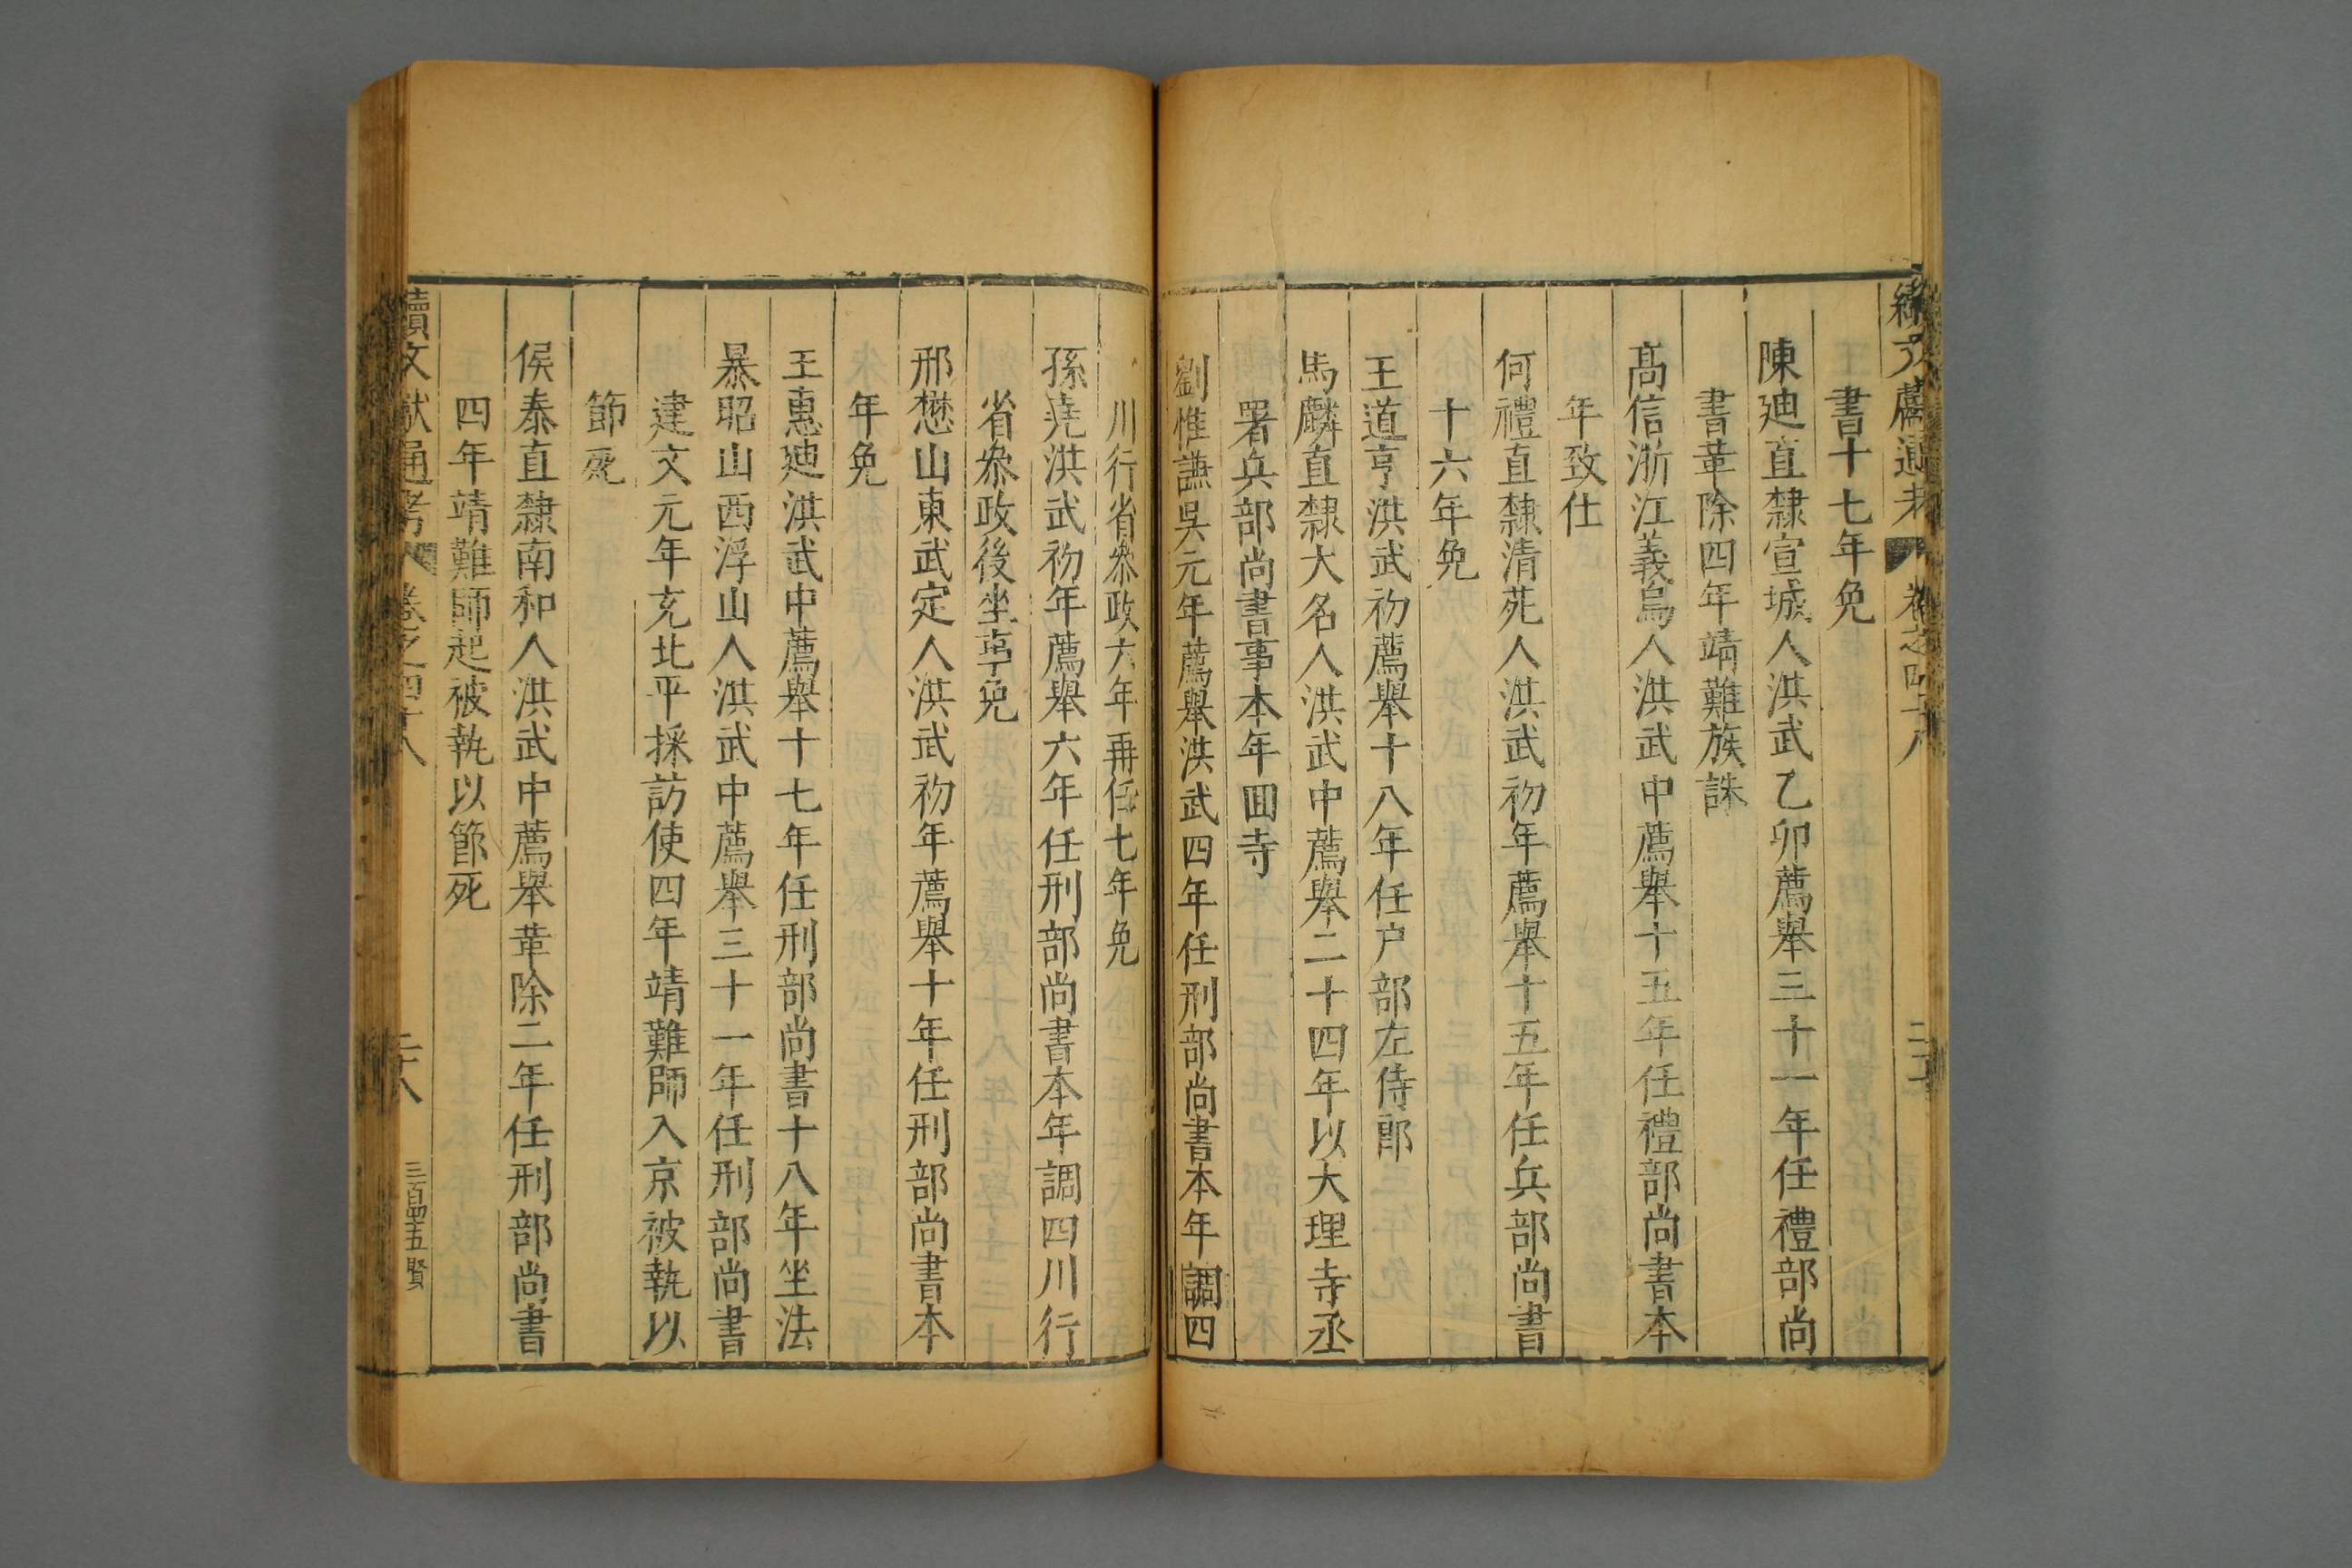 續文獻通考 卷之四十八
書十七年免
陳迪直隸宣城人洪武乙卯薦舉三十一年任禮部尚
書革除四年靖難族誅
髙信浙江義烏人洪武中薦舉十五年任禮部尚書本
年致仕
何禮直隸清苑人洪武初年薦舉十五年任兵部尚書
十六年免
王道亨洪武初薦舉十八年任户部左侍郎
馬麟直隸大名人洪武中薦舉二十四年以大理寺丞
署兵部尚書事本年囬寺
劉惟謙吳元年薦舉洪武四年任刑部尚書本年調四
川行省叅政六年再任七年免
孫堯洪武初年薦舉六年任刑部尚書本年調四川行
省叅政後坐事免
邢懋山東武定人洪武初年薦舉十年任刑部尚書本
年免
王惠廸洪武中薦舉十七年任刑部尚書十八年坐法
暴昭山西浮山人洪武中薦舉三十一年任刑部尚書
建文元年充北平採訪使四年靖難師入京被執以
節死
侯泰直隸南和人洪武中薦舉革除二年任刑部尚書
四年靖難師起被執以節死
續文獻通考 卷之四十八 二十八 三百四十五 賢